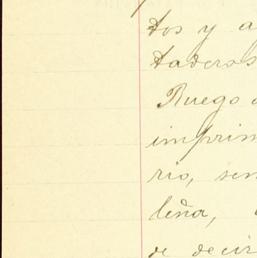 tos y a
taderos
Ruego
imprim
rio, sen
leña,
de decir